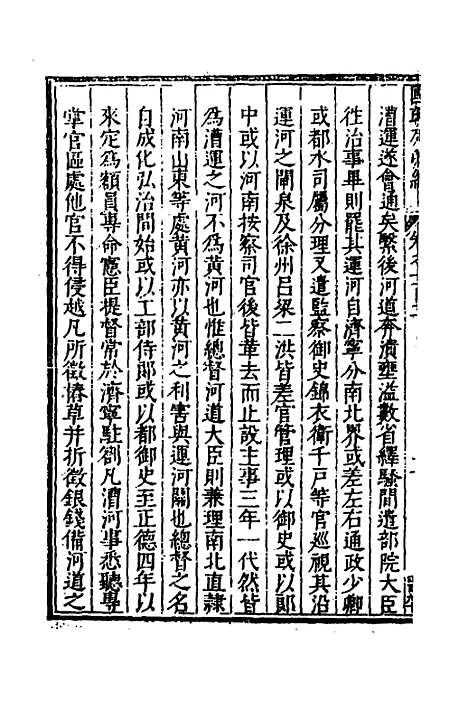 漕運遂會通矣緊後河道奔潰壅溢數省繹騷間遣部院大臣
往治事畢則罷其運河自濟寧分南北界或差左右通政少卿
或都水司屬分理又遣監察御史錦衣衛千戸等官巡視其沿
運河之閘泉及徐州吕梁二洪皆差官管理或以御史或以郎
中或以河南按察司官後皆革去而止設主事三年一代然皆
為漕運之河不為黃河也惟總督河道大臣則兼理南北直隷
河南山東等處黃河亦以黃河之利害與運河關也總督之名
自成化弘治間始或以工部侍郎或以都御史至正德四年以
來定為額員專命憲臣提督常於濟寧駐劄凡漕河事悉聽專
掌官區處他官不得侵越凡所徵樁草并折徵銀錢備河道之